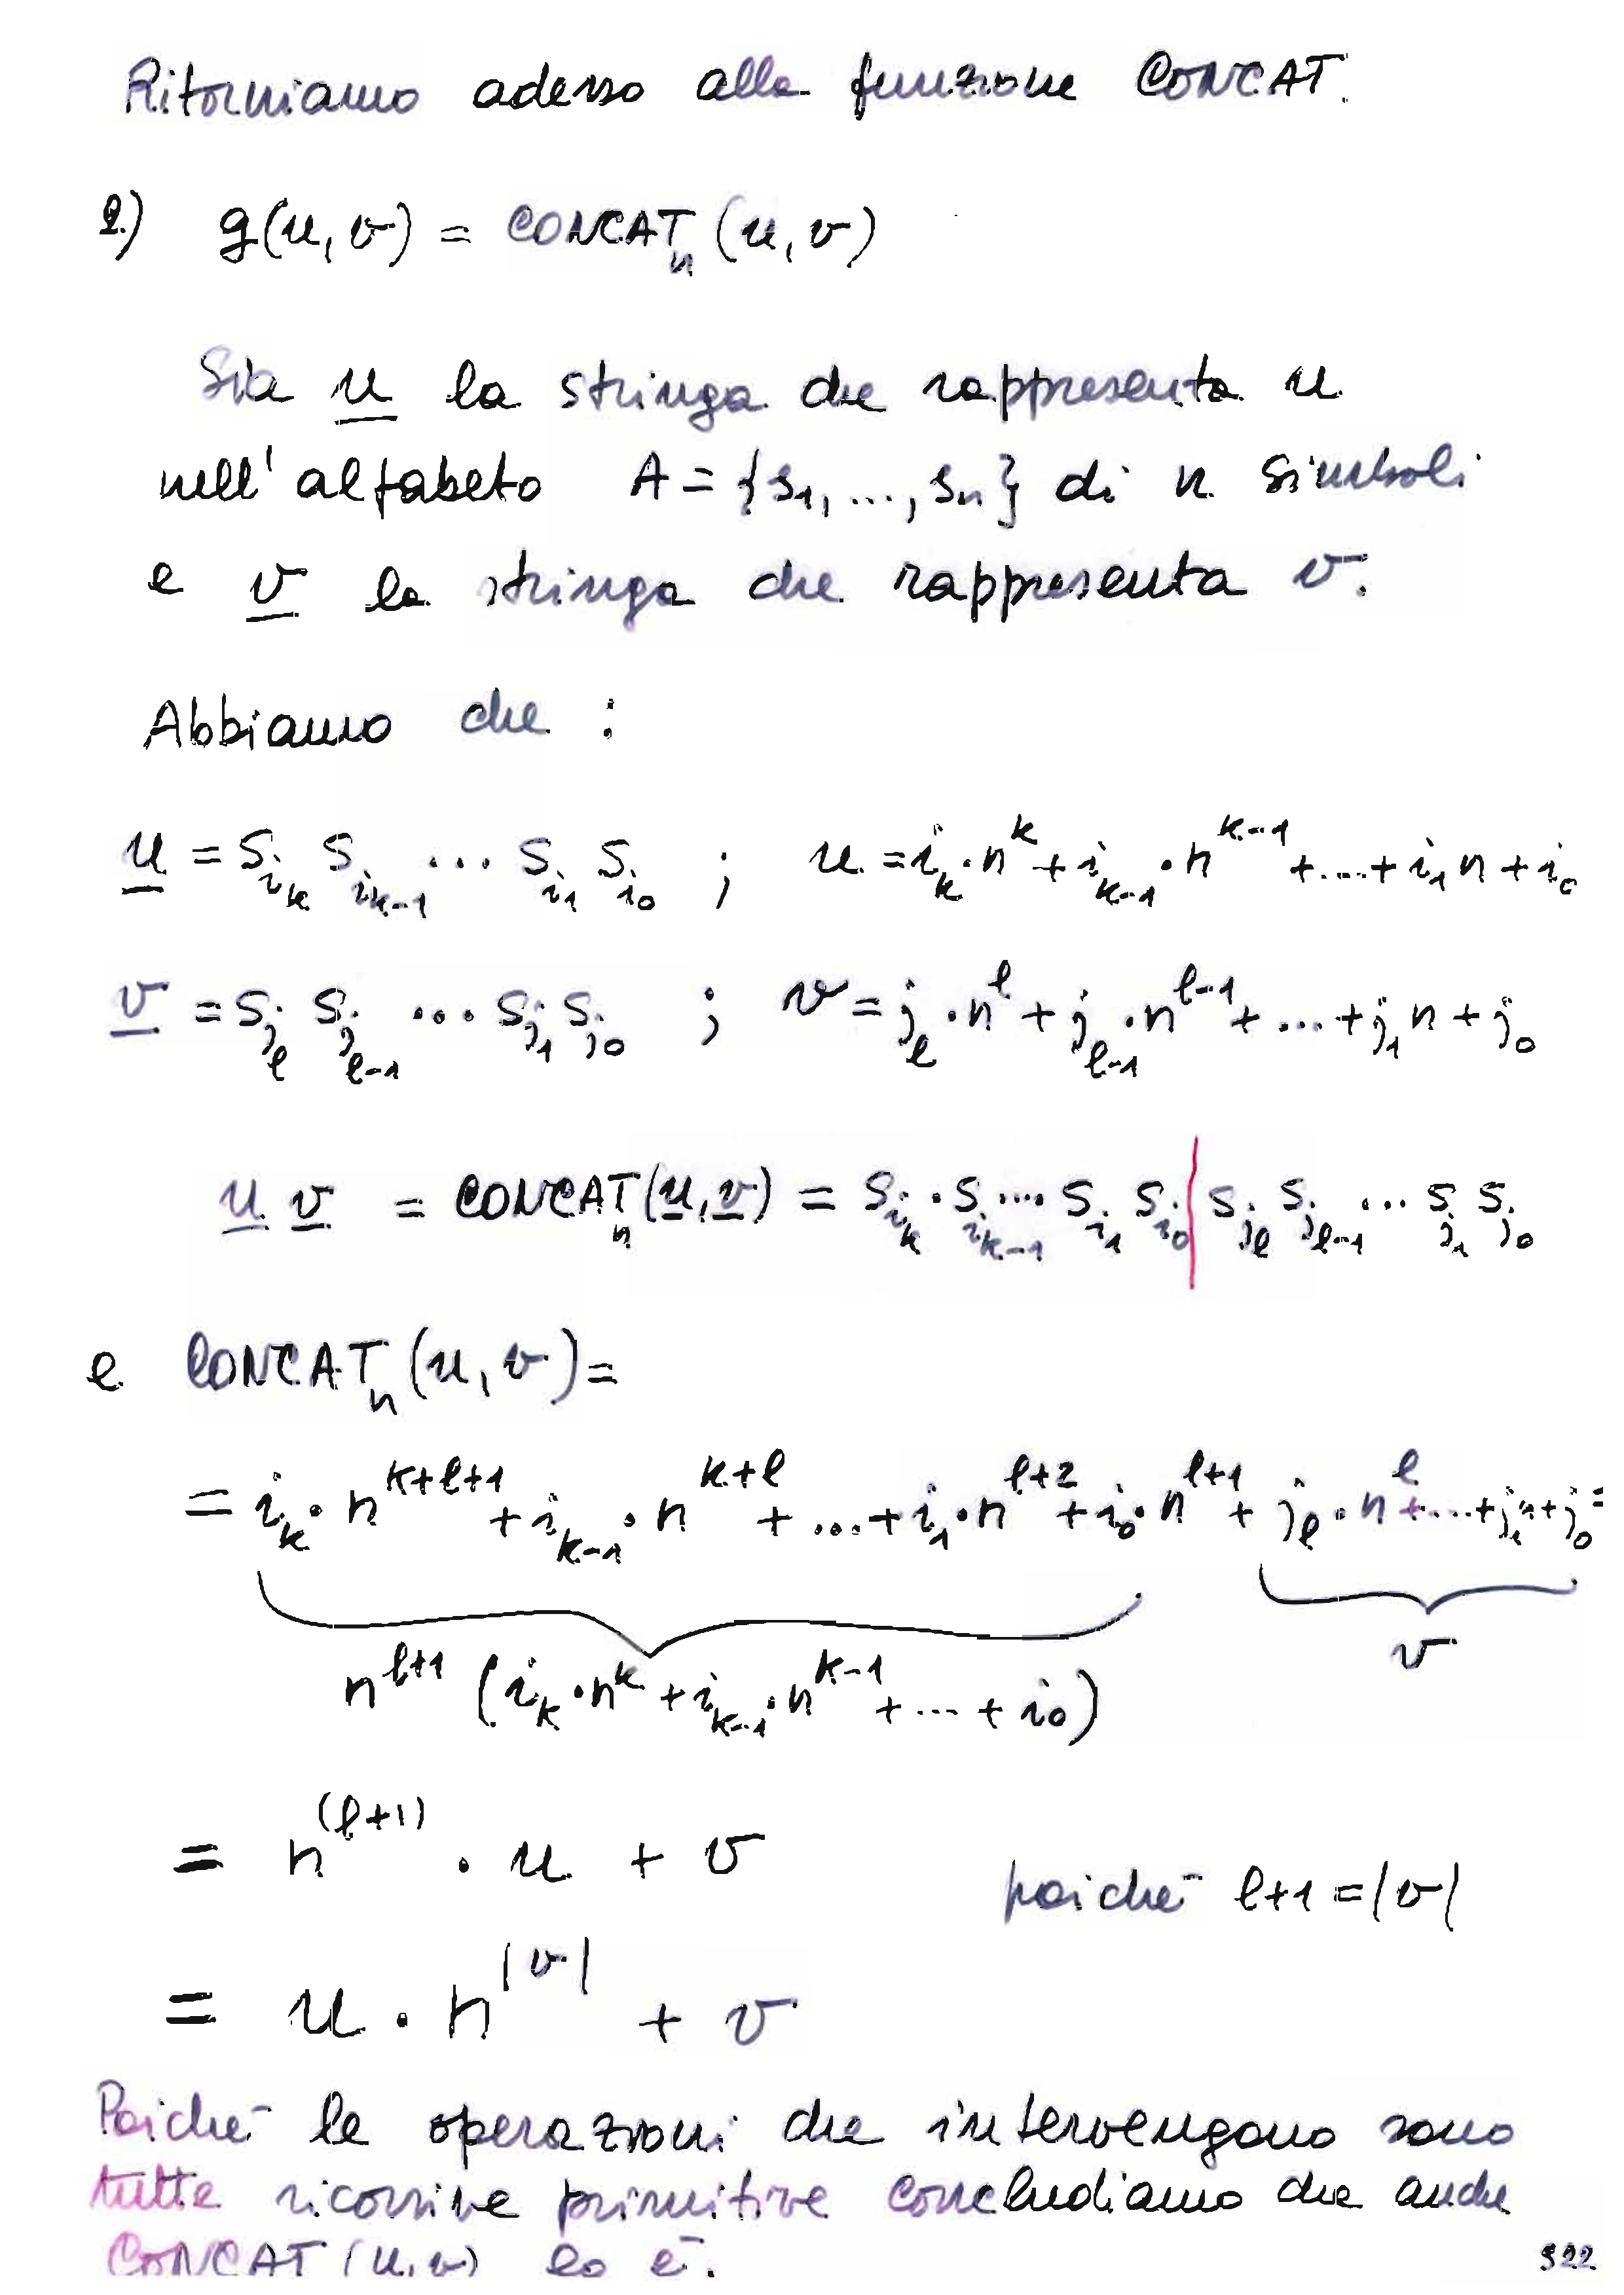 Ritorniamo adesso alla funzione CONCAT.
2.) g(u,v) = CONCAT_n (u,v)
Sia u la stringa che rappresenta u
nell'alfabeto A = {s_1, ..., s_n} di n simboli
e v la stringa che rappresenta v.
Abbiamo che :
u = s_{i_k} s_{i_{k-1}} ... s_{i_1} s_{i_0} ; u = i_k · n^k + i_{k-1} · n^{k-1} + .... + i_1 n + i_0
v = s_{j_l} s_{j_{l-1}} ... s_{j_1} s_{j_0} ; v = j_l · n^l + j_{l-1} · n^{l-1} + ... + j_1 n + j_0
u v = CONCAT_n (u,v) = s_{i_k} · s_{i_{k-1}} .... s_{i_1} s_{i_0} | s_{j_l} s_{j_{l-1}} ... s_{j_1} s_{j_0}
e CONCAT_n (u,v) =
= i_k · n^{k+l+1} + i_{k-1} · n^{k+l} + ... + i_1 · n^{l+2} + i_0 · n^{l+1} + j_l · n^l + ... + j_1 n + j_0 =
n^{l+1} (i_k · n^k + i_{k-1} · n^{k-1} + ... + i_0) v
= n^{(l+1)} · u + v
poichè l+1 = |v|
= u · n^{|v|} + v
Poichè le operazioni che intervengono sono
tutte ricorsive primitive concludiamo che anche
CONCAT (u,v) lo è.
S22